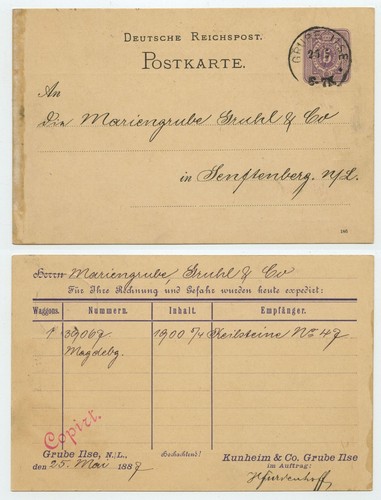 DEUTSCHE REICHSPOST.
POSTKARTE.
GRUBE ILSE
An
die Mariengrube Gruhl & Co
in Senftenberg. N/L.
Herrn Mariengrube, Gruhl & Co
Für Ihre Rechnung und Gefahr wurden heute expedirt:
Waggons. Nummern. Inhalt. Empfänger.
1 39067 1900 Keilsteine No 47
Magdebg.
Copirt.
Grube Ilse, N./L., Beobachtend! Kunheim & Co. Grube Ilse
den 25. Mai 1887 im Auftrag: